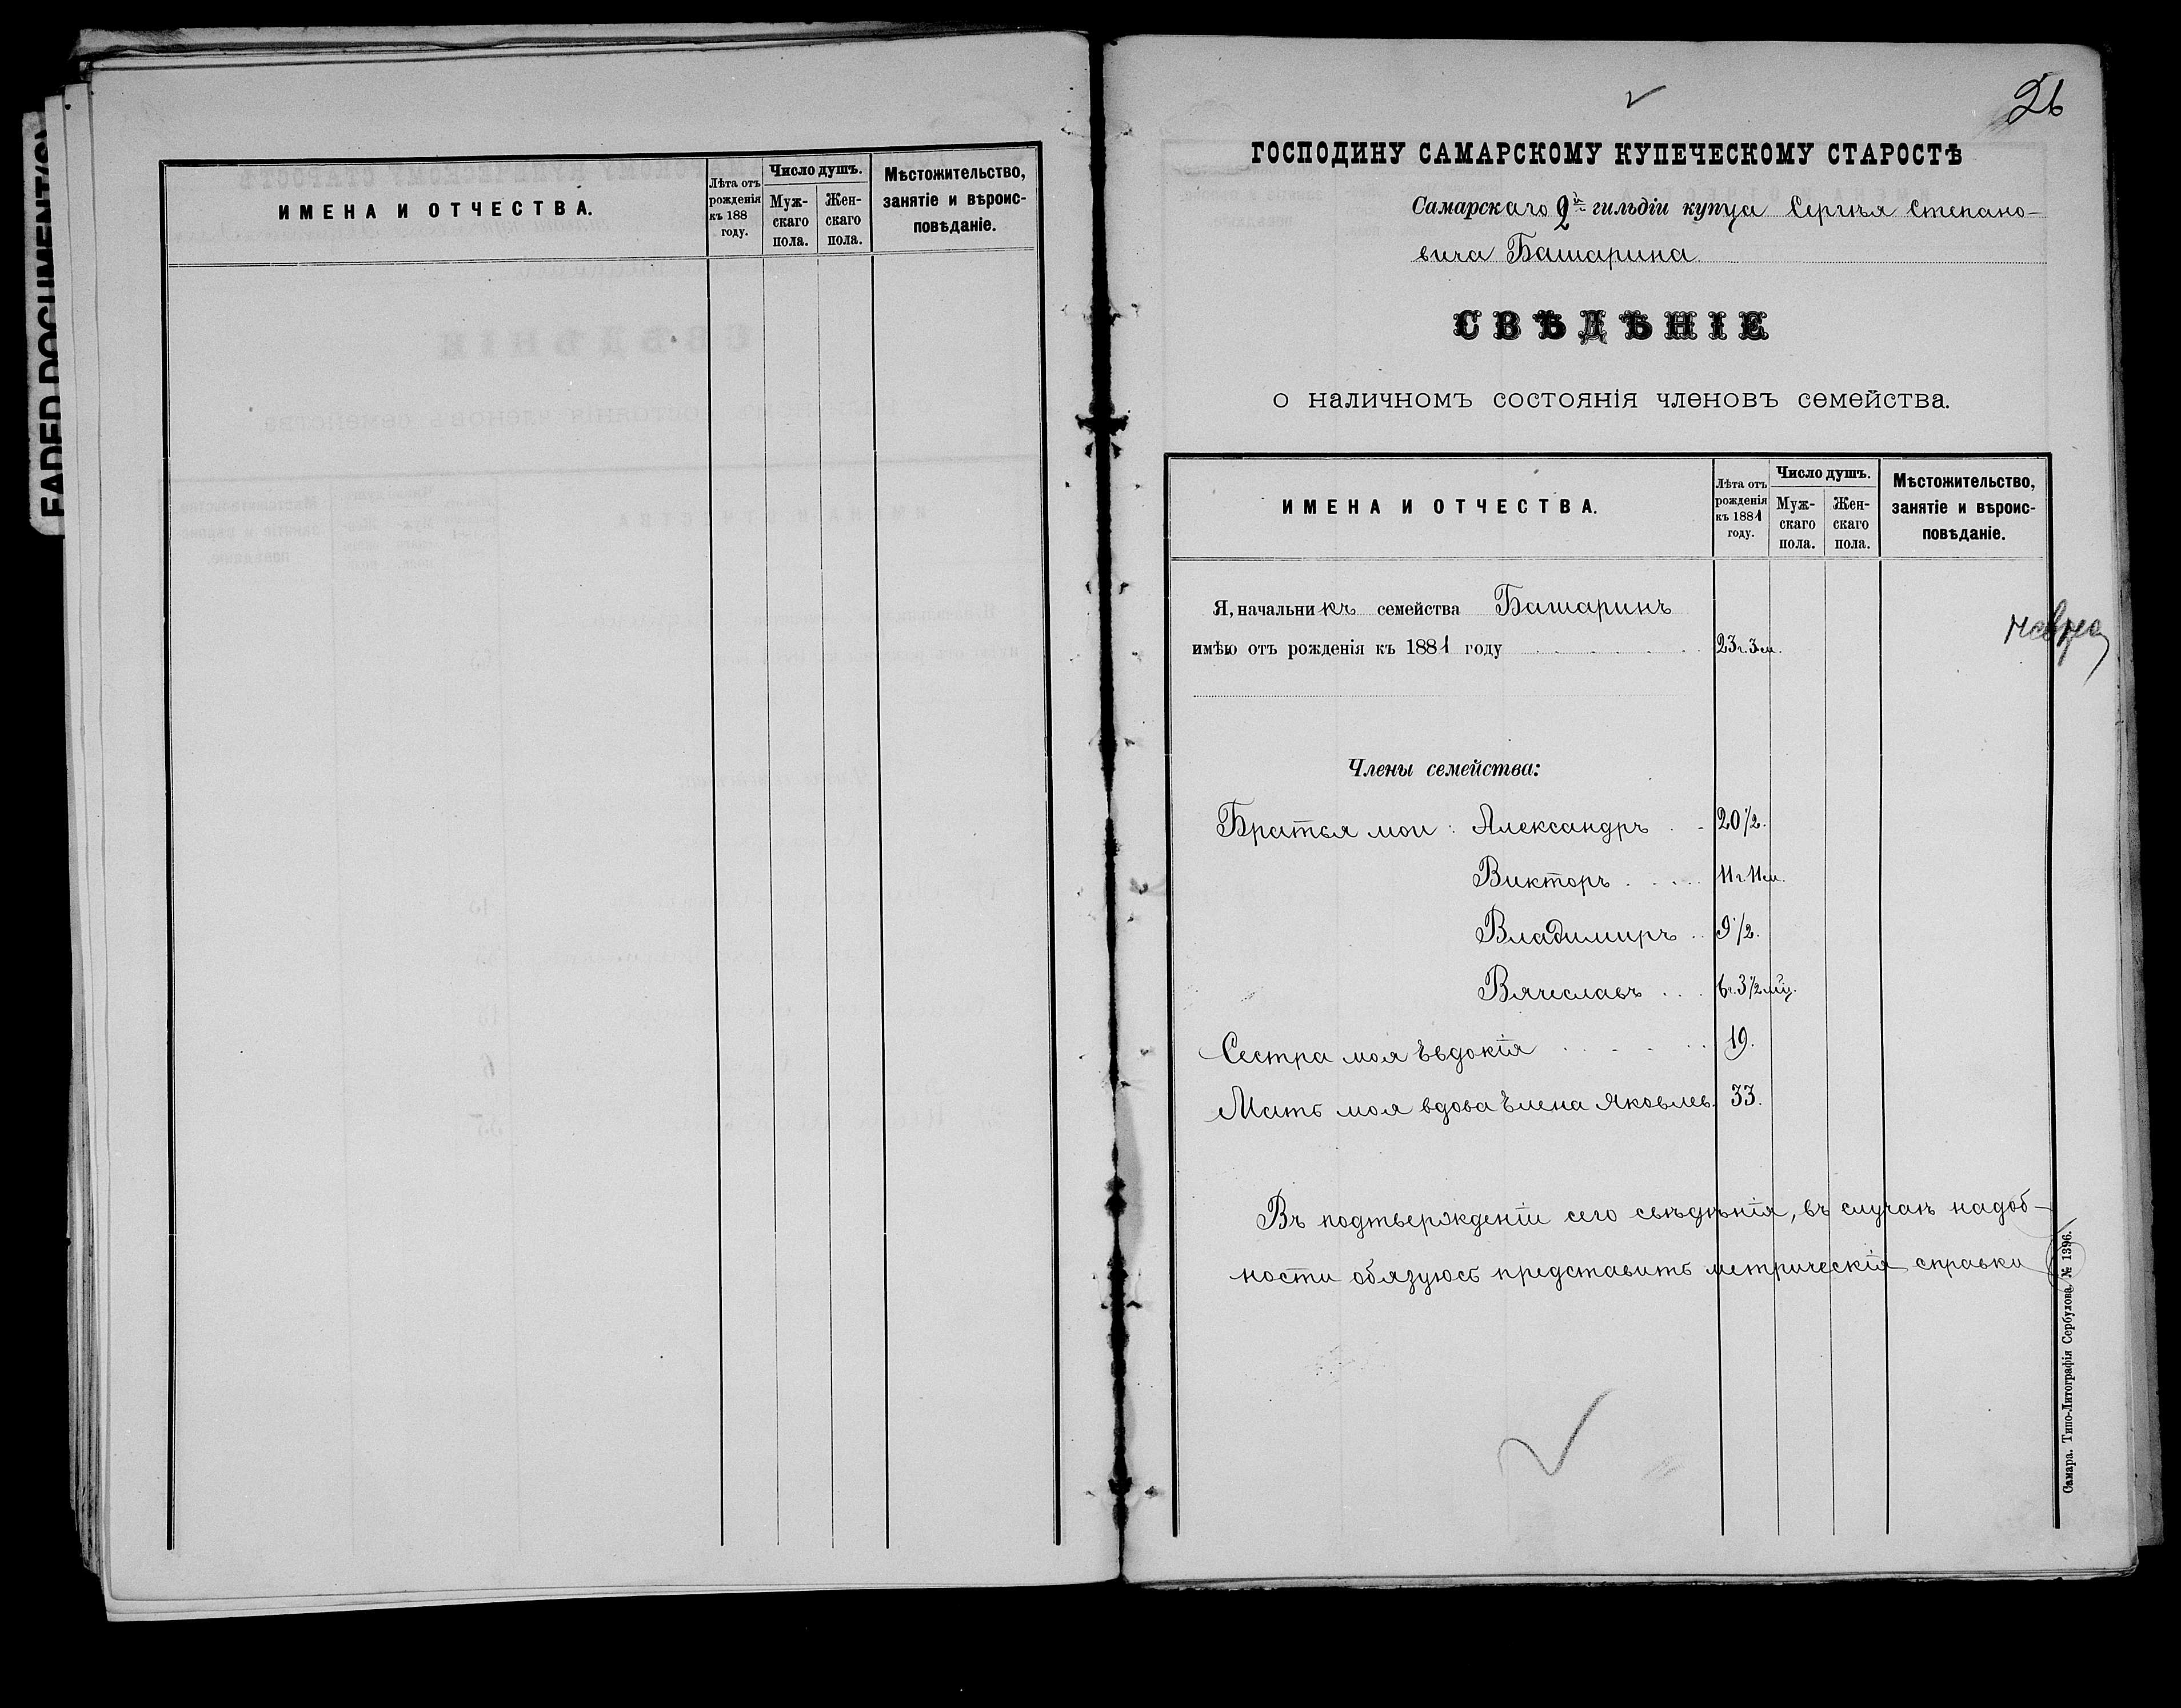 FADED DOCUMENT(S)
ИМЕНА И ОТЧЕСТВА.
Лѣта отъ рожденія къ 188 году.
Число душъ.
Мужскаго пола.
Женскаго пола.
Мѣстожительство, занятіе и вѣроисповѣданіе.
26
ГОСПОДИНУ САМАРСКОМУ КУПЕЧЕСКОМУ СТАРОСТѢ
Самарскаго 2й гильдіи купца Сергѣя Степано-
вича Башарина
СВѢДѢНІЕ
о наличномъ состоянія членовъ семейства.
ИМЕНА И ОТЧЕСТВА.
Лѣта отъ рожденія къ 1881 году.
Число душъ.
Мужскаго пола.
Женскаго пола.
Мѣстожительство, занятіе и вѣроисповѣданіе.
Я, начальникъ семейства Башаринъ
имѣю отъ рожденія къ 1881 году 23 г. 3 м.
Члены семейства:
Братья мои: Александръ 20 1/2.
Викторъ 11 г. 11 м.
Владимиръ 9 1/2.
Вячеславъ 6 г. 3 1/2 мц.
Сестра моя Евдокія 19.
Мать моя вдова Елена Яковлев. 33.
Въ подтвержденіи сего свѣдѣнія, въ случаѣ надоб-
ности обязуюсь представить метрическія справки
Самара. Типо-Литографія Сербулова № 1396.